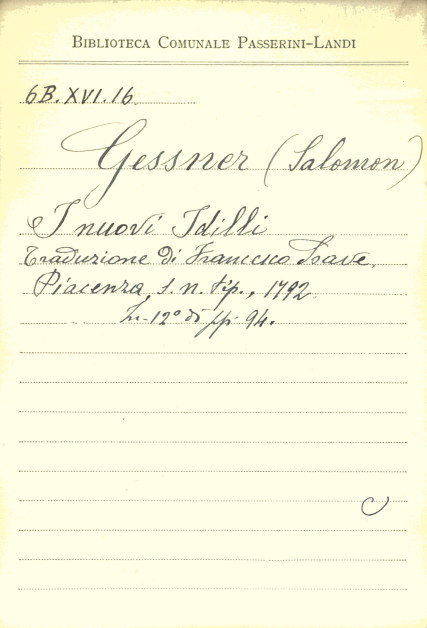 BIBLIOTECA COMUNALE PASSERINI-LANDI
6B.XVI.16
Gessner (Salomon)
I nuovi Idilli
Traduzione di Francesco Soave.
Piacenza, s. n. tip., 1792.
In-12° di pp. 94.
C